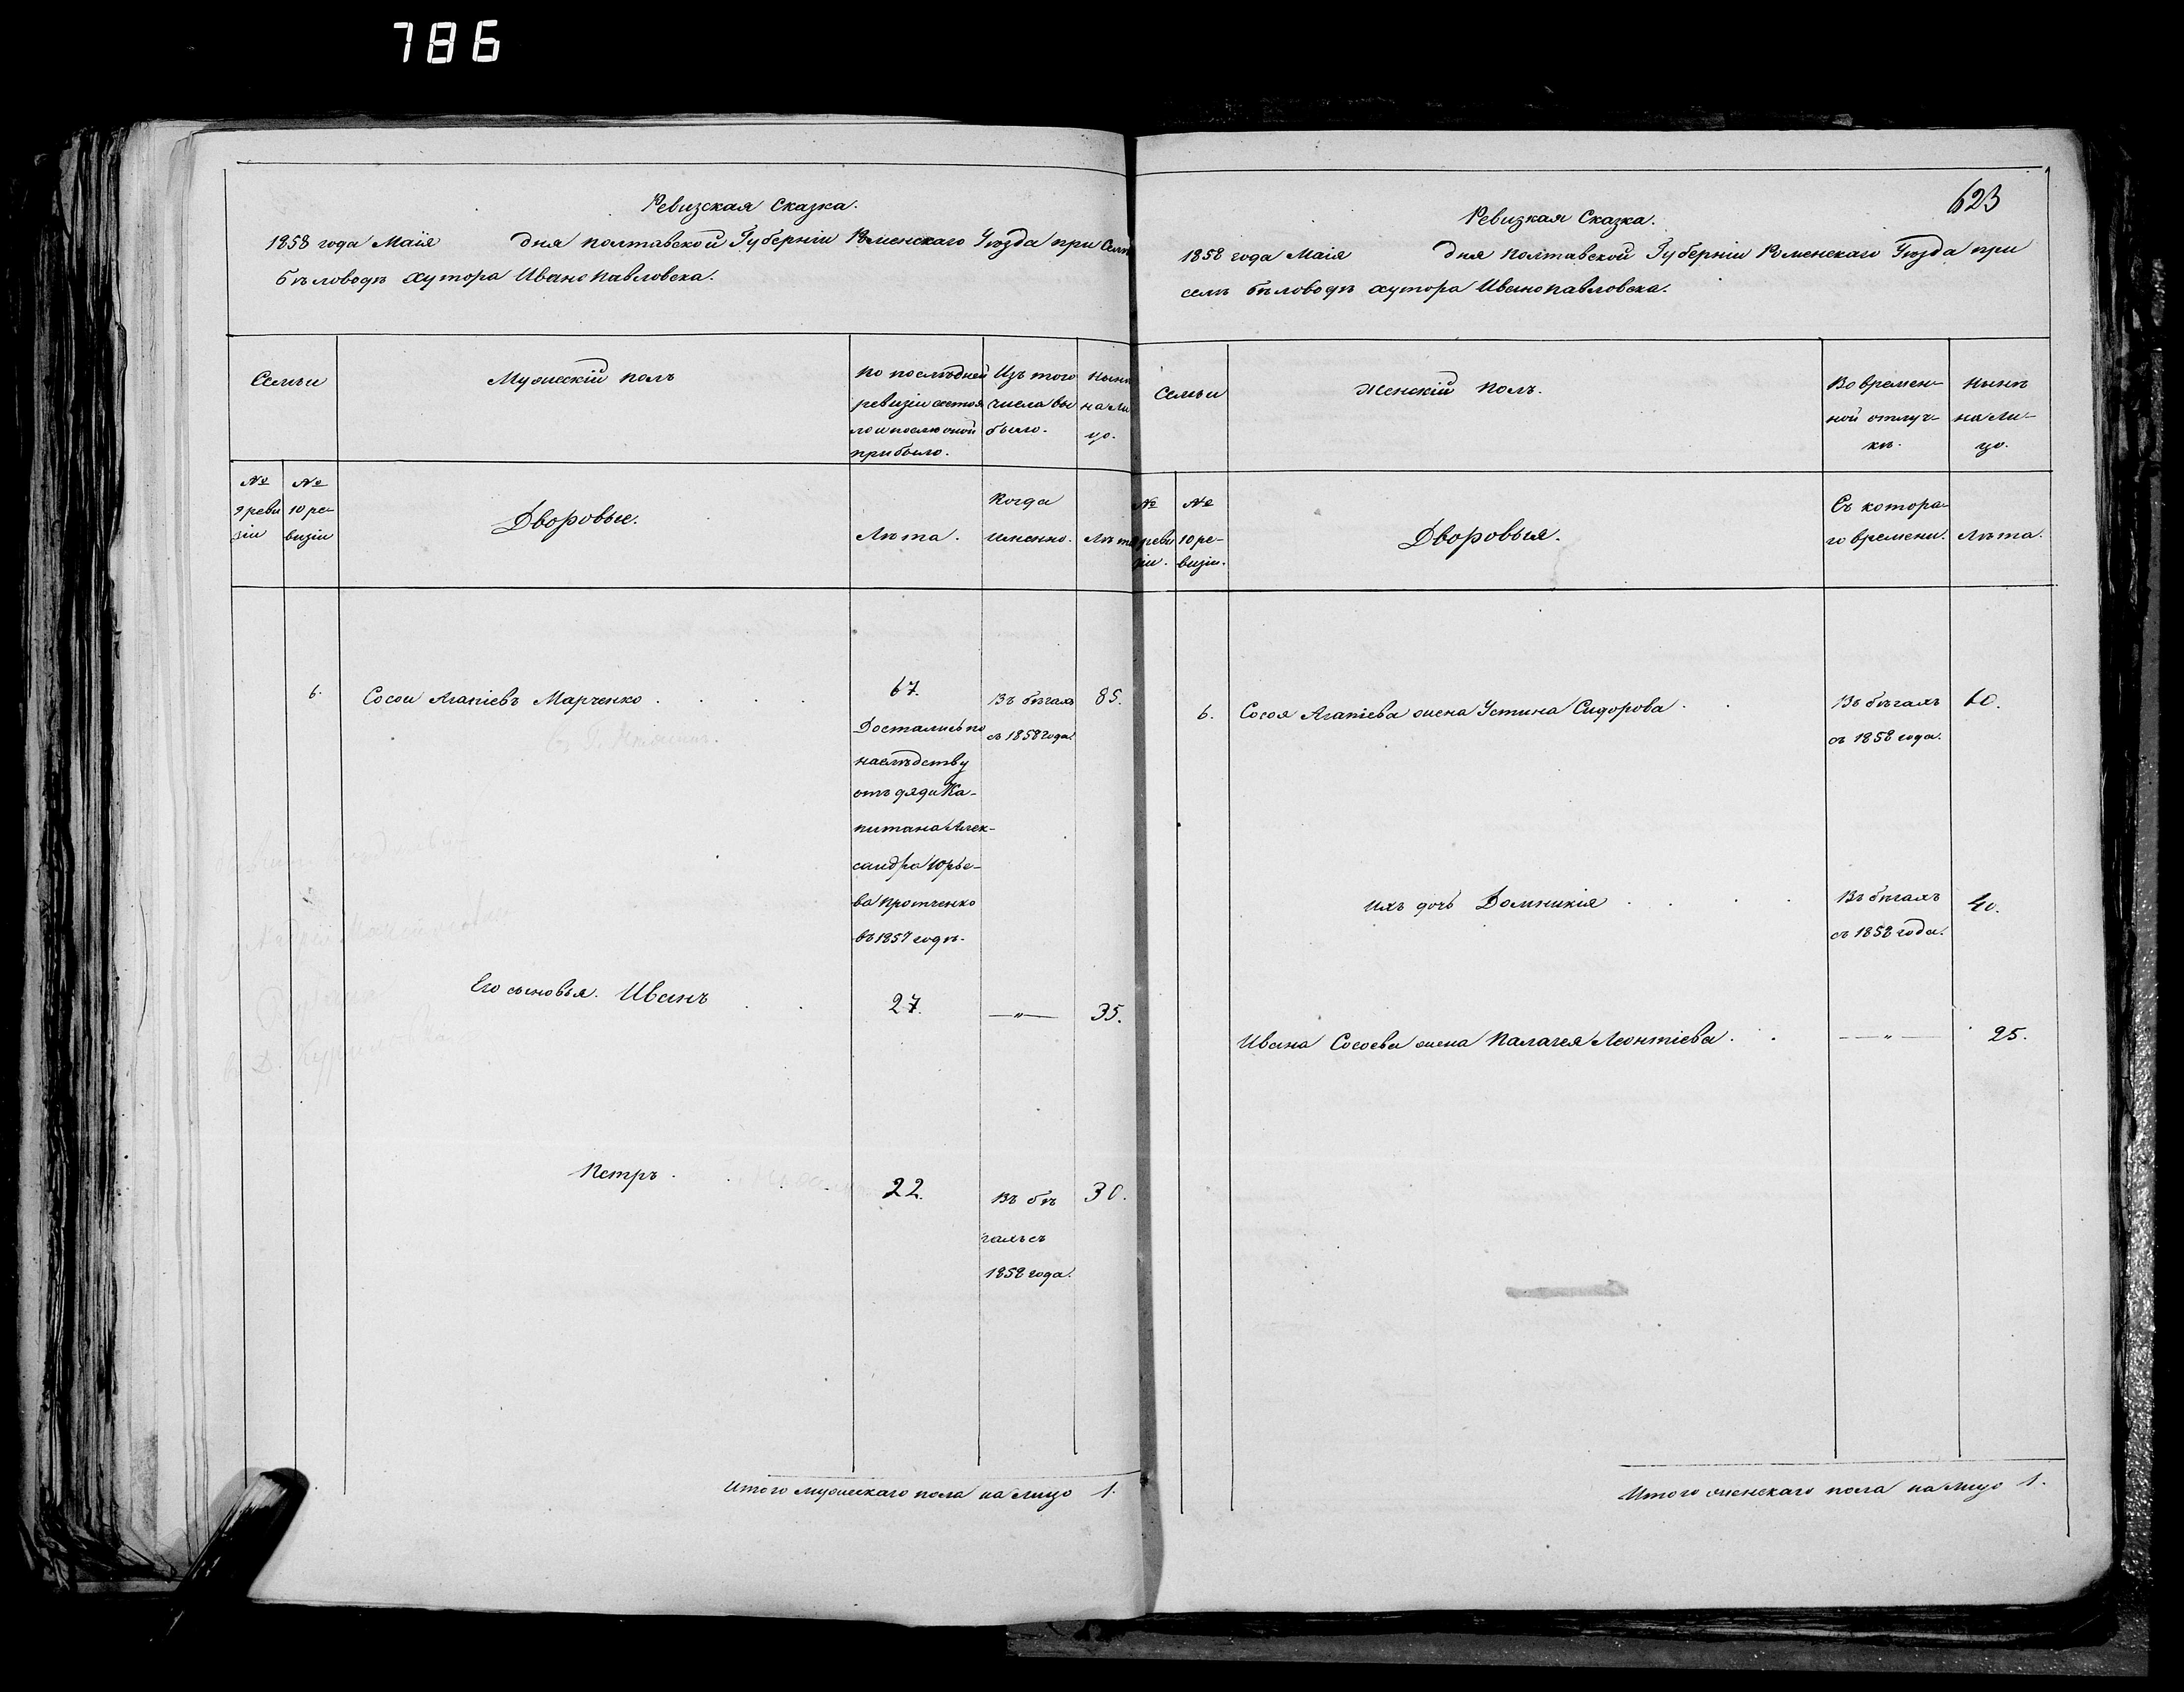 786
Ревизская Сказка.
1858 года Маія дня полтавской Губерніи Роменскаго Уѣзда при Селѣ
бѣловодѣ хутора Иванопавловска.
Семьи
Мужескій полъ
по послѣдней
ревизіи состоя
ло и послѣ оной
прибыло.
Изъ того
числа вы
было.
Нынѣ
на ли
цо.
№
9 реви
зіи
№
10 ре-
визіи
Дворовые.
Лѣта.
Когда
именно.
Лѣта
6.
Сосои Агапіевъ Марченко
67.
Достались по
наслѣдству
отъ дяди Ка-
питана Алек-
сандра Юрье-
ва Протченко
въ 1857 годѣ.
Въ бѣгахъ
съ 1858 года.
85.
Его сыновья. Иванъ
27.
— „ —
35.
Петръ.
22.
Въ бѣ
гахъ съ
1858 года.
30.
Итого мужескаго пола на лицо 1.
623
Ревизкая Сказка.
1858 года Маія дня полтавской Губерніи Роменскаго Уѣзда при
селѣ бѣловодѣ хутора Иванопавловска.
Семьи
Женскій полъ.
Во времен-
ной отлуч-
кѣ.
Нынѣ
на ли-
цо.
№
9 реви
зіи.
№
10 ре-
визіи.
Дворовыя.
Съ котора-
го времени.
Лѣта.
6.
Сосоя Агапіева жена Устина Сидорова
Въ бѣгахъ
съ 1858 года.
60.
Ихъ дочь Домникія
Въ бѣгахъ
съ 1858 года.
40.
Ивана Сосоева жена Палагея Леонтіева
— „ —
25.
Итого женскаго пола на лицо 1.